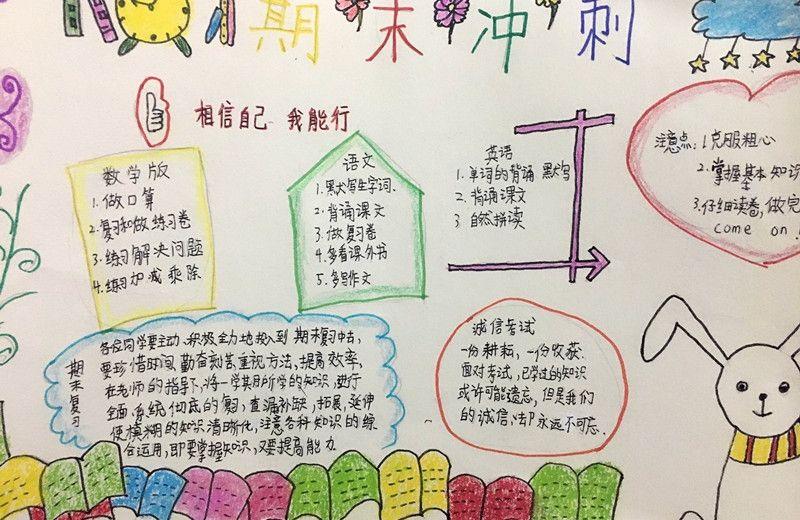 期末冲刺
相信自己 我能行
数学版
1.做口算
2.复习和做练习卷
3.练习解决问题
4.练习加减乘除
语文
1.默写生字词.
2.背诵课文
3.做复习卷
4.多看课外书
5.多写作文
英语
1.单词的背诵 默写
2.背诵课文
3 自然拼读
注意点:1克服粗心
2.掌握基本知识
3.仔细读卷,做完
come on!
期末复习
各位同学要主动、积极、全力地投入到期末复习中去,
要珍惜时间、勤奋刻苦、重视方法、提高效率,
在老师的指导下,将一学期所学的知识,进行
全面、系统、彻底的复习,查漏补缺,拓展,延伸
使模糊的知识清晰化,注意各科知识的综
合运用,即要掌握知识,又要提高能力.
诚信考试
一份耕耘,一份收获.
面对考试,已学过的知识
或许可能遗忘,但是我们
的诚信,却永远不可忘.